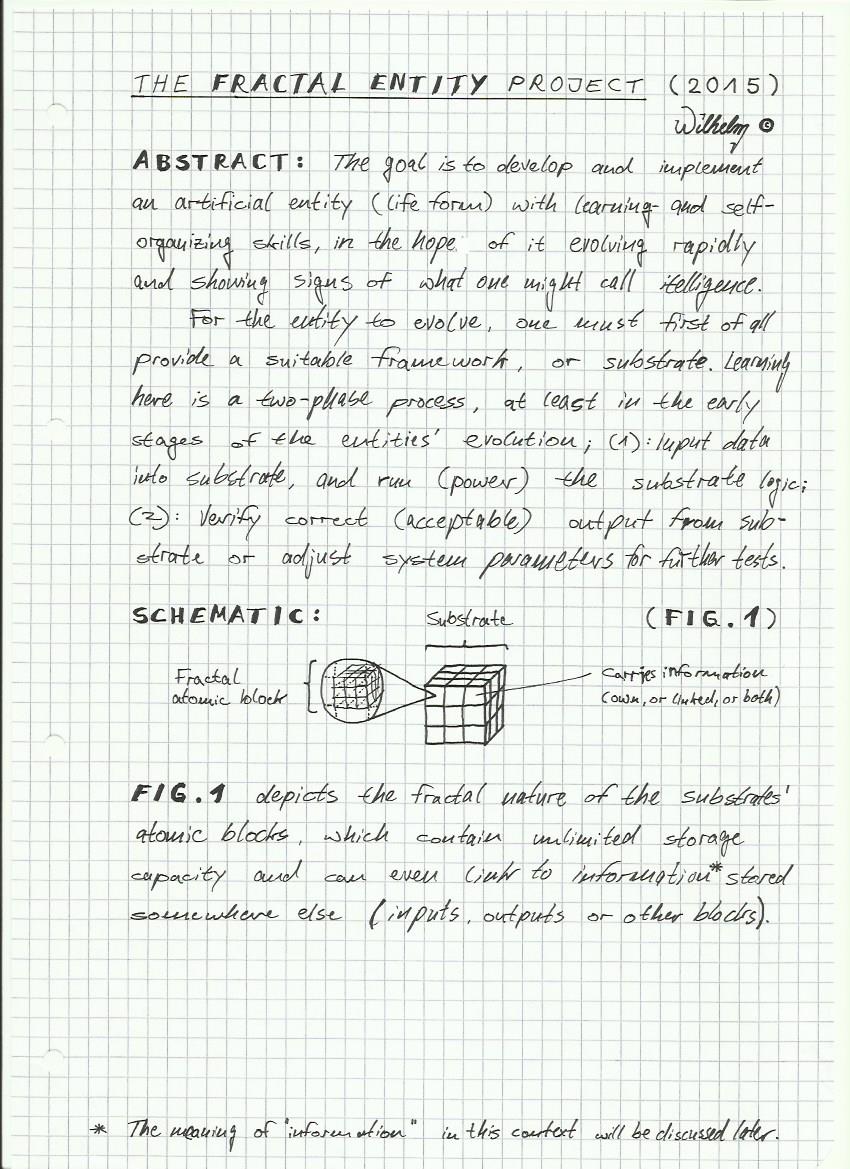 THE FRACTAL ENTITY PROJECT (2015)
Wilhelm ©
ABSTRACT: The goal is to develop and implement
an artificial entity (life form) with learning- and self-
organizing skills, in the hope of it evolving rapidly
and showing signs of what one might call itelligence.
For the entity to evolve, one must first of all
provide a suitable framework, or substrate. Learning
here is a two-phase process, at least in the early
stages of the entities' evolution; (1): Input data
into substrate, and run (power) the substrate logic;
(2): Verify correct (acceptable) output from sub-
strate or adjust system parameters for further tests.
SCHEMATIC: Substrate (FIG.1)
Fractal
atomic block
Carries information
(own, or linked, or both)
FIG.1 depicts the fractal nature of the substrates'
atomic blocks, which contain unlimited storage
capacity and can even link to information* stored
somewhere else (inputs, outputs or other blocks).
* The meaning of "information" in this context will be discussed later.